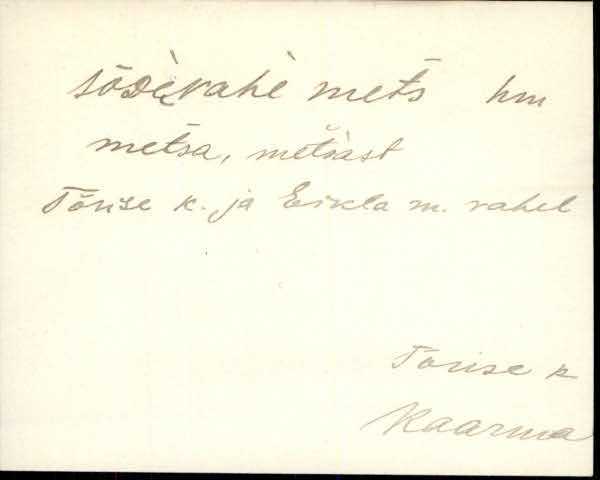 sõDèrahè mets hm
metsa, metsast
Tõrise k. ja Eikla m. vahel
Tõrise k
Kaarma